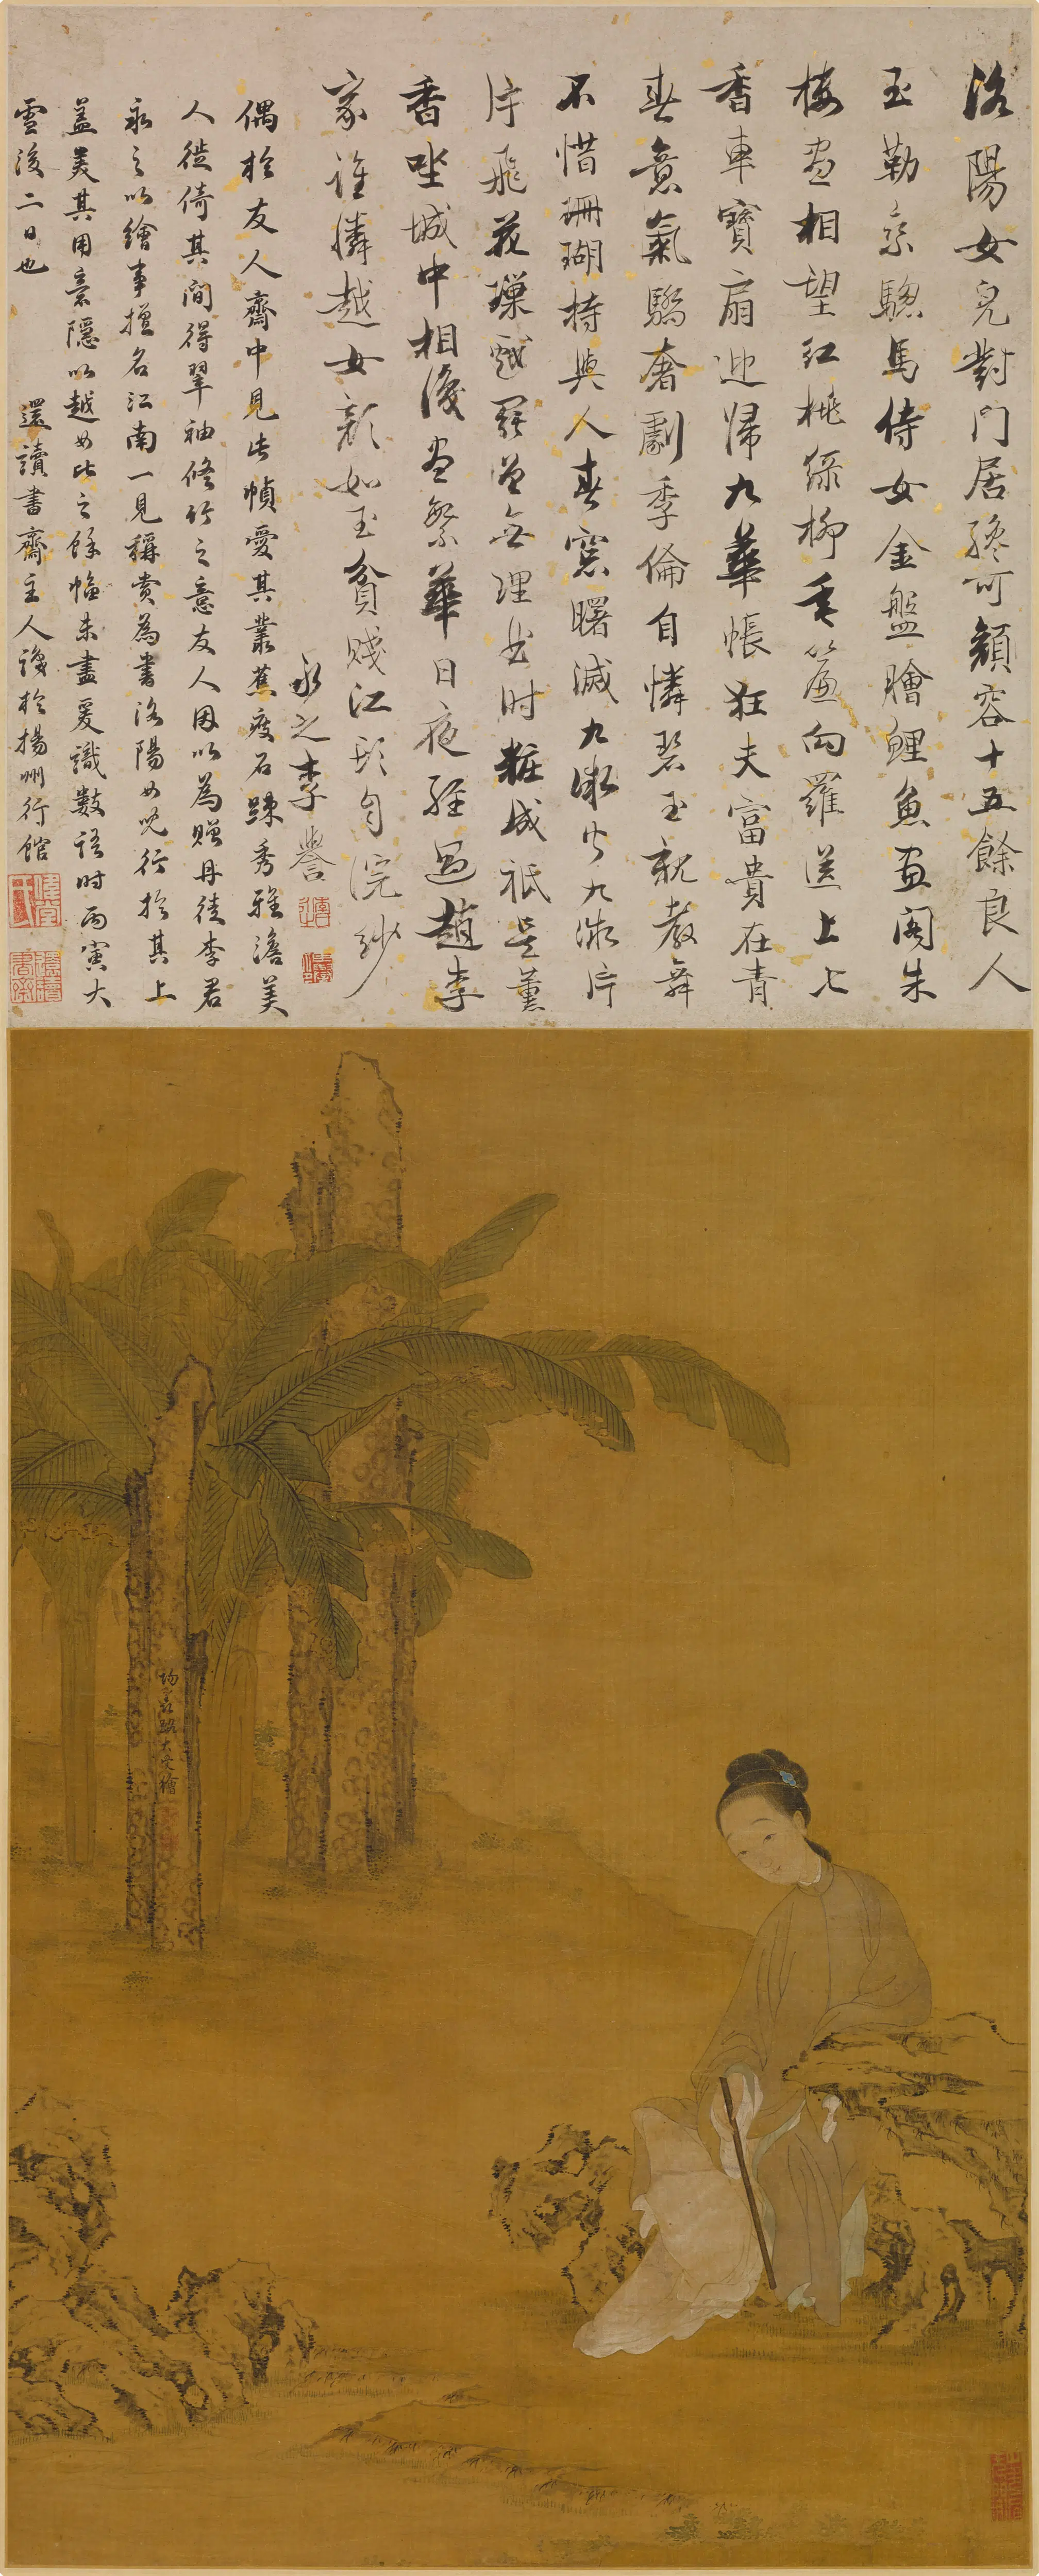 洛陽女兒對門居纔可顏容十五餘良人
玉勒乘驄馬侍女金盤膾鯉魚畫閣朱
樓盡相望紅桃綠柳垂簷向羅送上七
香車寶扇迎歸九華帳狂夫富貴在青
春意氣驕奢劇季倫自憐碧玉親教舞
不惜珊瑚持與人春窗曙滅九微火九微片
片飛花璅戲罷曾無理曲時粧成祗是薰
香坐城中相識盡繁華日夜經過趙李
家誰憐越女顏如玉貧賤江頭自浣紗
永之李譽
偶於友人齋中見此幀愛其叢蕉瘦石踈秀雅澹美
人徙倚其間得翠袖修竹之意友人因以為贈丹徒李君
永之以繪事擅名江南一見稱賞為書洛陽女兒行於其上
蓋美其用意隱以越女比之餘幅未盡爰識數語時丙寅大
雪後二日也 還讀書齋主人識於揚州行館
還讀書齋